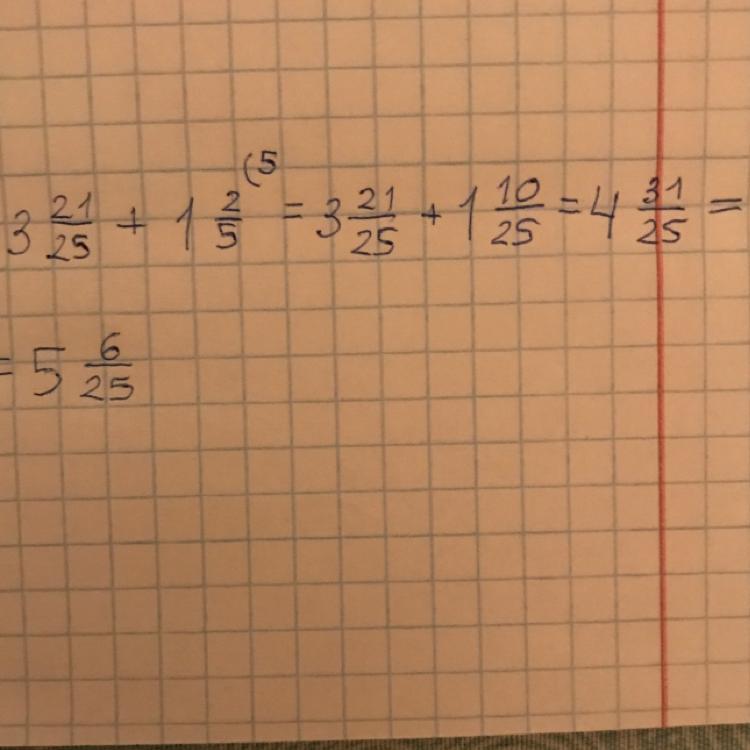 3 21/25 + 1 2/5 (5 = 3 21/25 + 1 10/25 = 4 31/25 =
= 5 6/25